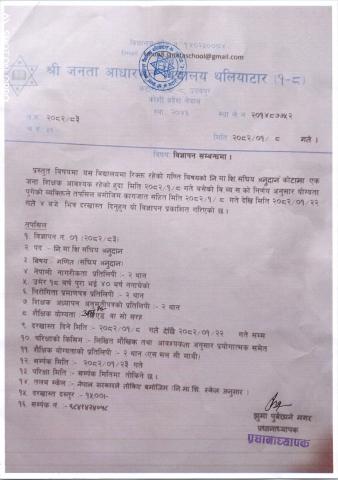 श्री जनता आधारभूत विद्यालय थलियाटार (१-८)
उदयपुर
कोशी प्रदेश नेपाल
प.सं. २०८२/८३
च.नं.
मिति २०८२/०१/ ८ गते ।
विषय: विज्ञापन सम्बन्धमा ।
प्रस्तुत बिषयमा यस विद्यालयमा रिक्त रहेको गणित बिषयको नि.मा.बि संघिय अनुदान कोटामा एक
जना शिक्षक आवश्यक रहेको हुदा मिति २०८२/१/८ गते बसेको बि.व्य.स.को निर्णय अनुसार योग्यता
पुगेको व्यक्तिले तपसिल बमोजिम कागजात सहित मिति २०८२/१/ ८ गते देखि मिति २०८२/०१/२२
गते ४ बजे भित्र दरखास्त दिनुहुन यो विज्ञापन प्रकाशित गरिएको छ ।
तपसिल
१. विज्ञापन नं ०१ (२०८२/८३)
२ पद - नि.मा.बि (संघिय अनुदान)
३ बिषय - गणित (संघिय अनुदान)
४ नेपाली नागरीकता प्रतिलिपी :- २ थान
५ उमेर १८ बर्ष पुरा भई ४० बर्ष ननाघेको
६ निरोगिता प्रमाणपत्र प्रतिलिपि :- २ थान
७ शिक्षक अध्यापन अनुमतीपत्रको प्रतिलिपी :- २ थान
८ शैक्षिक योग्यता वा सो सरह
९ दरखास्त दिने मिति :- २०८२/०१/८ गते देखि २०८२/०१/२२ गते सम्म
१० परिक्षाको किसिम :- लिखित मौखिक तथा आवश्यकता अनुसार प्रयोगात्मक समेत
११ शैक्षिक योग्यताको प्रतिलिपी - २ थान
१२ सम्पर्क मिति :- २०८२/०१/२३ गते
१३ परिक्षा मिति :- सम्पर्क मितिमा तोकिने छ ।
१४ तलब स्केल :- नेपाल सरकारले तोकिए बमोजिम (नि.मा.बि. स्केल अनुसार)
१५ दरखास्त दस्तुर :- १५००।-
१६ सम्पर्क नं :-
झुमा पुर्बछाने मगर
प्रधानाध्यापक
प्रधानाध्यापक